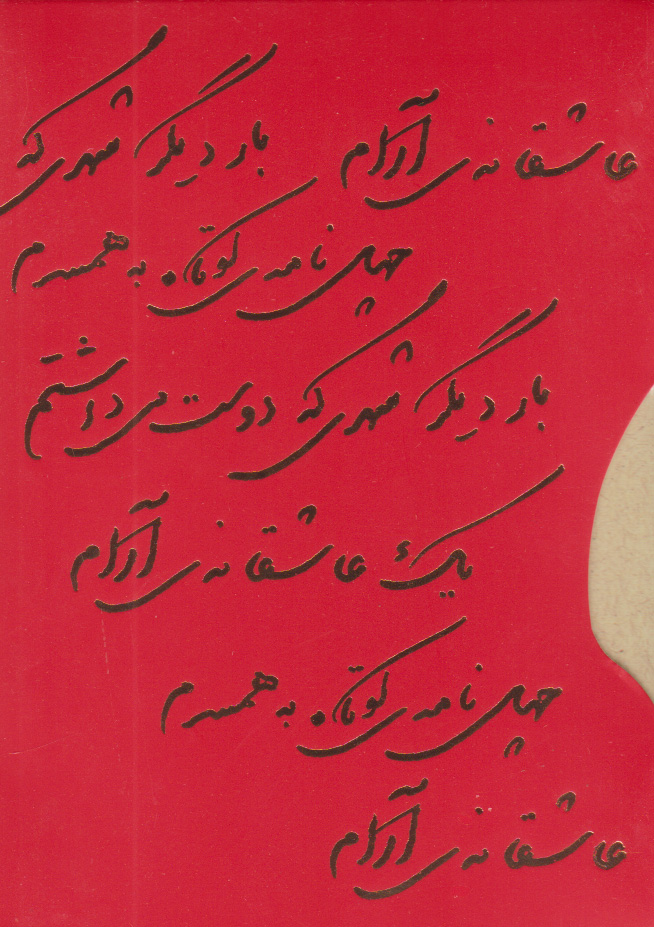 عاشقانه‌ی آرام بار دیگر شهری که
چهل نامه‌ی کوتاه به همسرم
بار دیگر شهری که دوست می‌داشتم
یک عاشقانه‌ی آرام
چهل نامه‌ی کوتاه به همسرم
عاشقانه‌ی آرام